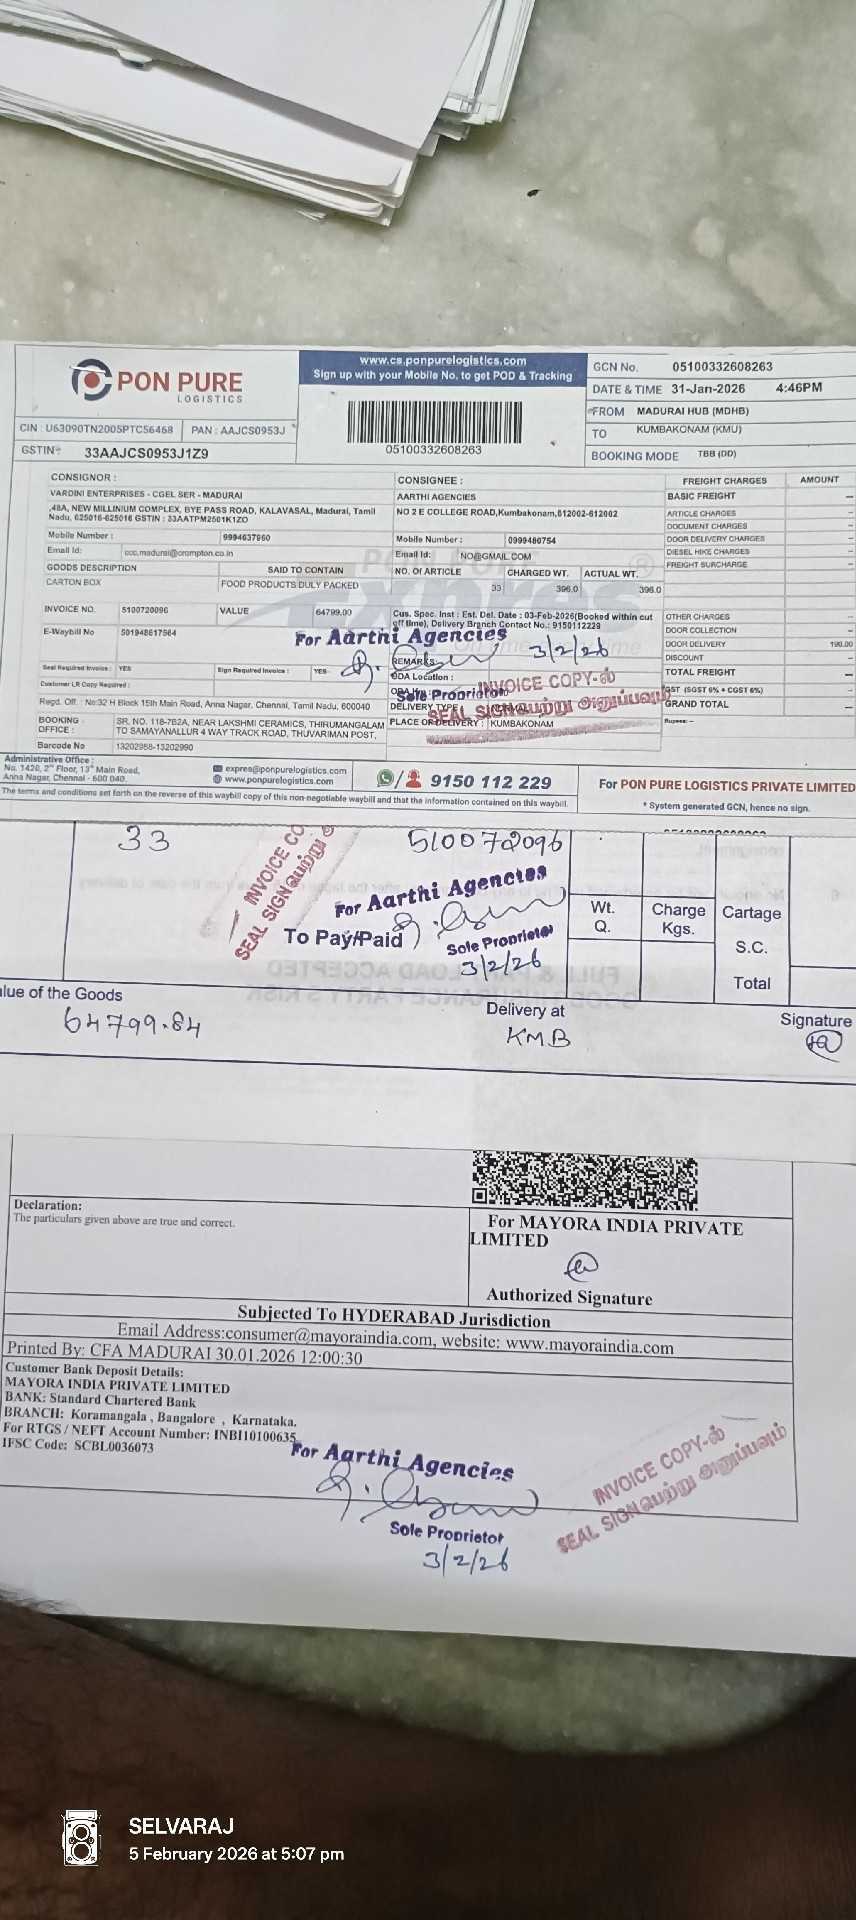 PON PURE
LOGISTICS
www.cs.ponpurelogistics.com
Sign up with your Mobile No. to get POD & Tracking
05100332608263
GCN No. 05100332608263
DATE & TIME 31-Jan-2026 4:46PM
FROM MADURAI HUB (MDHB)
TO KUMBAKONAM (KMU)
BOOKING MODE TBB (DD)
CIN : U63090TN2005PTC56468 PAN : AAJCS0953J
GSTIN: 33AAJCS0953J1Z9
CONSIGNOR :
VARDINI ENTERPRISES - CGEL SER - MADURAI
,48A, NEW MILLINIUM COMPLEX, BYE PASS ROAD, KALAVASAL, Madurai, Tamil
Nadu, 625016-625016 GSTIN : 33AATPM2501K1ZO
Mobile Number : 9994637960
Email Id: ccc.madurai@crompton.co.in
CONSIGNEE :
AARTHI AGENCIES
NO 2 E COLLEGE ROAD,Kumbakonam,612002-612002
Mobile Number : 0999480754
Email Id: NO@GMAIL.COM
GOODS DESCRIPTION SAID TO CONTAIN NO. OF ARTICLE CHARGED WT. ACTUAL WT.
CARTON BOX FOOD PRODUCTS DULY PACKED 33 396.0 396.0
INVOICE NO. 5100720096 VALUE 64799.00
E-Waybill No 501948617564
Cus. Spec. Inst : Est. Del. Date : 03-Feb-2026(Booked within cut
off time), Delivery Branch Contact No.: 9150112229
For Aarthi Agencies
3/2/26
REMARKS
ODA Location :
Sole Proprietor
INVOICE COPY-ல்
SEAL SIGN பெற்று அனுப்பவும்
DELIVERY TYPE
PLACE OF DELIVERY : KUMBAKONAM
Seal Required Invoice : YES Sign Required Invoice : YES
Customer LR Copy Required :
Regd. Off. : No:32 H Block 15th Main Road, Anna Nagar, Chennai, Tamil Nadu, 600040
BOOKING OFFICE : SR. NO. 118-7B2A, NEAR LAKSHMI CERAMICS, THIRUMANGALAM
TO SAMAYANALLUR 4 WAY TRACK ROAD, THUVARIMAN POST,
Barcode No 13202958-13202990
FREIGHT CHARGES AMOUNT
BASIC FREIGHT
ARTICLE CHARGES
DOCUMENT CHARGES
DOOR DELIVERY CHARGES
DIESEL HIKE CHARGES
FREIGHT SURCHARGE
OTHER CHARGES
DOOR COLLECTION
DOOR DELIVERY 190.00
DISCOUNT
TOTAL FREIGHT
GST (SGST 6% + CGST 6%)
GRAND TOTAL
Rupees: --
Administrative Office :
No. 1420, 2nd Floor, 13th Main Road,
Anna Nagar, Chennai - 600 040.
expres@ponpurelogistics.com
www.ponpurelogistics.com
9150 112 229
For PON PURE LOGISTICS PRIVATE LIMITED
* System generated GCN, hence no sign.
The terms and conditions set forth on the reverse of this waybill copy of this non-negotiable waybill and that the information contained on this waybill.
33 510072096
INVOICE CO
SEAL SIGN பெற்று
For Aarthi Agencies
To Pay/Paid
Sole Proprietor
3/2/26
Wt.
Q.
Charge
Kgs.
Cartage
S.C.
Total
alue of the Goods
64799.84
Delivery at
KMB
Signature
Declaration:
The particulars given above are true and correct.
For MAYORA INDIA PRIVATE
LIMITED
Authorized Signature
Subjected To HYDERABAD Jurisdiction
Email Address:consumer@mayoraindia.com, website: www.mayoraindia.com
Printed By: CFA MADURAI 30.01.2026 12:00:30
Customer Bank Deposit Details:
MAYORA INDIA PRIVATE LIMITED
BANK: Standard Chartered Bank
BRANCH: Koramangala , Bangalore , Karnataka.
For RTGS / NEFT Account Number: INBI10100635
IFSC Code: SCBL0036073
For Aarthi Agencies
Sole Proprietor
3/2/26
INVOICE COPY-ல்
SEAL SIGN பெற்று அனுப்பவும்
SELVARAJ
5 February 2026 at 5:07 pm